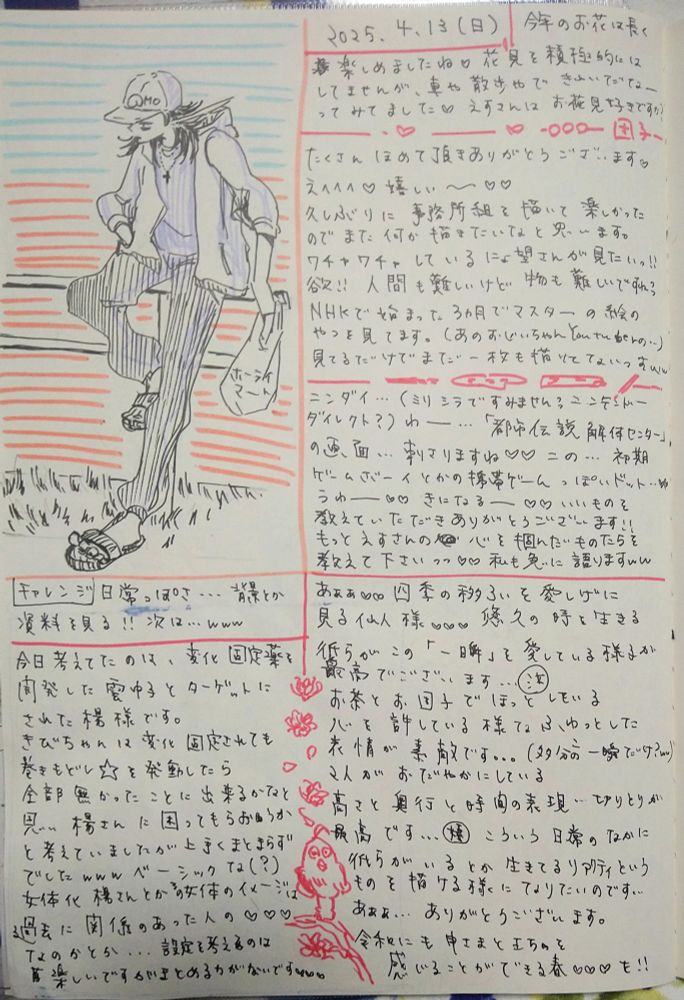 2025.4.13(日)
今年のお花は長く
楽しめましたね♡ 花見を積極的には
してませんが、車や散歩やで きれいだなー
ってみてました♡ えすさんは お花見好きですか?
団子
たくさん ほめて頂きありがとうございます♡
え^^^♡ 嬉しい〜♡♡
久しぶりに 事務所組を描いて 楽しかった
のでまた 何か描きたいなと思います。
ワチャワチャしている 望さんが見たいっ!!
欲!! 人間も難しいけど 物も難しいですね?
NHKで始まった3ヵ月でマスターの絵の
やつを見てます。(あのおじいちゃん
見てるだけでまだ一枚も描けてないっすww
ニンダイ…(ミリシラですみません?ニンテンドー
ダイレクト?) わー…「都市伝説解体センター」
の画面… 刺さりますね♡♡ この… 初期
ゲームボーイとかの携帯ゲームっぽいドット…
うわー♡♡ きになるー♡♡ いいものを
教えていただきありがとうございます!!
もっとえすさんの 心を掴んだものたちを
教えて下さいっっ♡ 私も 語りますww
QMO
ホーライ
マート
チャレンジ 日常っぽさ… 背景とか
資料を見る!! 次は…www
今日考えてたのは、変化固定薬を
開発した雲ゆると ターゲットに
された楊様です。
きびちゃんは変化固定されても
巻きもどし☆を発動したら
全部無かったことに出来るかなと
思い 楊さんに困ってもらおうか
と考えていましたが上手くまとまらず
でしたwww ベーシックな(?)
女体化 楊さんとかの女体のイメージは
過去に関係のあった人の♡♡♡
なのかとか… 設定を考えるのは
楽しいですがまとめる力がないですwww
あぁぁ♡♡ 四季の移ろいを愛しげに
見る仙人様♡♡♡ 悠久の時を生きる
彼らがこの「一瞬」を愛している様子が
最高でございます…
お茶とお団子でほっとしている
心を許している様な ゆっとした
表情が素敵です…(多分一瞬だけ?ww)
2人がおだやかにしている
高さと奥行と時間の表現… 切りとりが
最高です… こういう日常のなかに
彼らがいるとか 生きてるリアリティという
ものを描ける様になりたいのです…
あぁぁ… ありがとうございます。
令和にも申さまと王ちゃんを
感じることができる春♡♡♡も!!